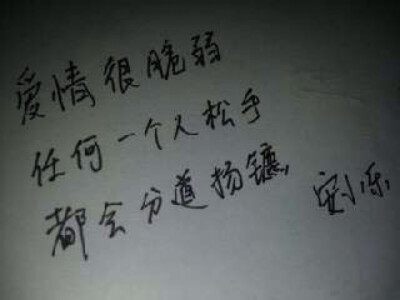 爱情很脆弱
任何一个人松手
都会分道扬镳,
安小乐